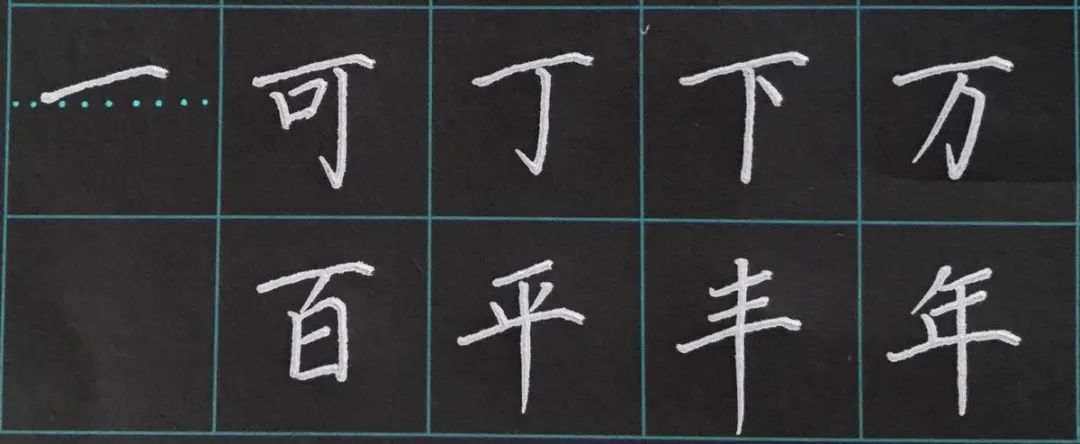 一 可 丁 下 万
百 平 丰 年